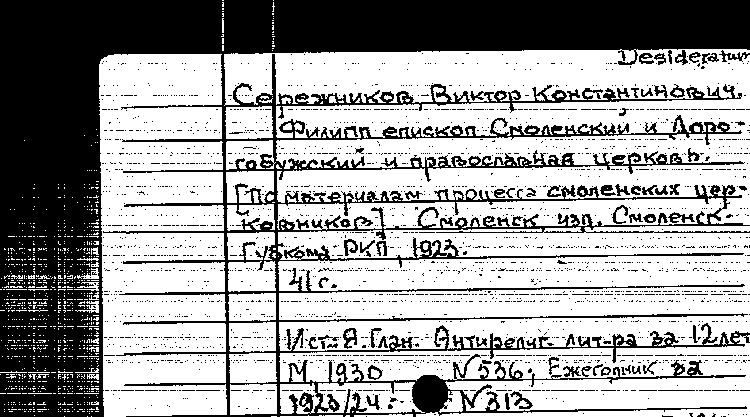 Desideratum
Сережников, Виктор Константинович.
Филипп епископ Смоленский и Доро-
гобужский и православная церковь.
[По материалам процесса смоленских цер-
ковников]. Смоленск, изд. Смоленск.
Губкома РКП, 1923.
41 с.
Ист.: Я. Глан. Антирелиг. лит-ра за 12 лет
М., 1930 N 536; Ежегодник за
1923/24.- N 313